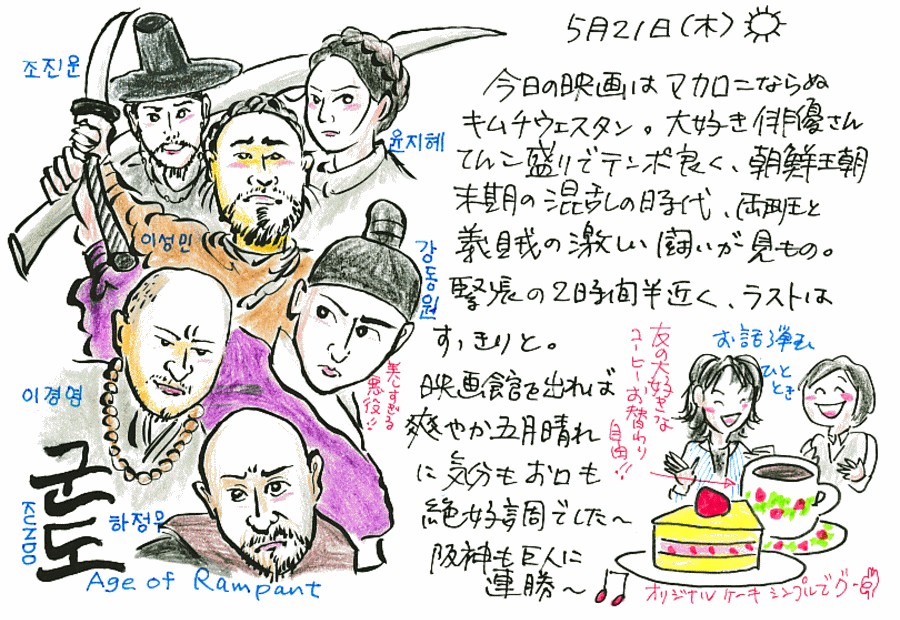 5月21日(木)
今日の映画はマカロニならぬ
キムチウェスタン。大好き俳優さん
てんこ盛りでテンポ良く、朝鮮王朝
末期の混乱の時代、両班と
義賊の激しい闘いが見もの。
緊張の2時間半近く、ラストは
すっきりと。
映画館を出れば
爽やか五月晴れ
に気分もお口も
絶好調でした〜
阪神も巨人に
連勝〜
조진웅
윤지혜
이성민
강동원
美しすぎる
悪役!!
이경영
하정우
군도
KUNDO
Age of Rampant
お話弾む
ひと
とき
友の大好きな
コーヒーお替わり
自由!!
オリジナルケーキ シンプルでグー